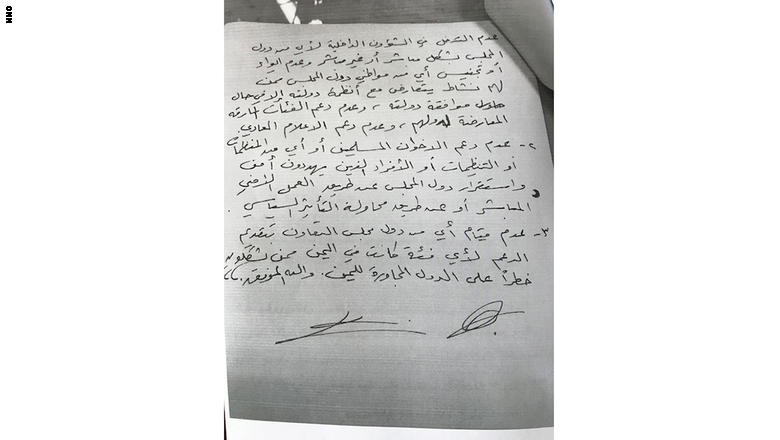 CNN
عدم التدخل في الشؤون الداخلية لأي من دول
المجلس بشكل مباشر أو غير مباشر وعدم إيواء
أو تجنيس أي من مواطني دول المجلس ممن
لهم نشاط يتعارض مع أنظمة دولته إلا في حال
موافقة دولته ، وعدم دعم الفئات المارقة
المعارضة لدولهم ، وعدم دعم الاعلام المعادي
٢- عدم دعم الاخوان المسلمين أو أي من المنظمات
أو التنظيمات أو الأفراد الذين يهددون أمن
واستقرار دول المجلس عن طريق العمل الأمني
المباشر أو عن طريق محاولة التأثير السياسي .
٣- عدم قيام أي من دول مجلس التعاون بتقديم
الدعم لأي فئة كانت في اليمن ممن يشكلون
خطراً على الدول المجاورة لليمن . والله الموفق